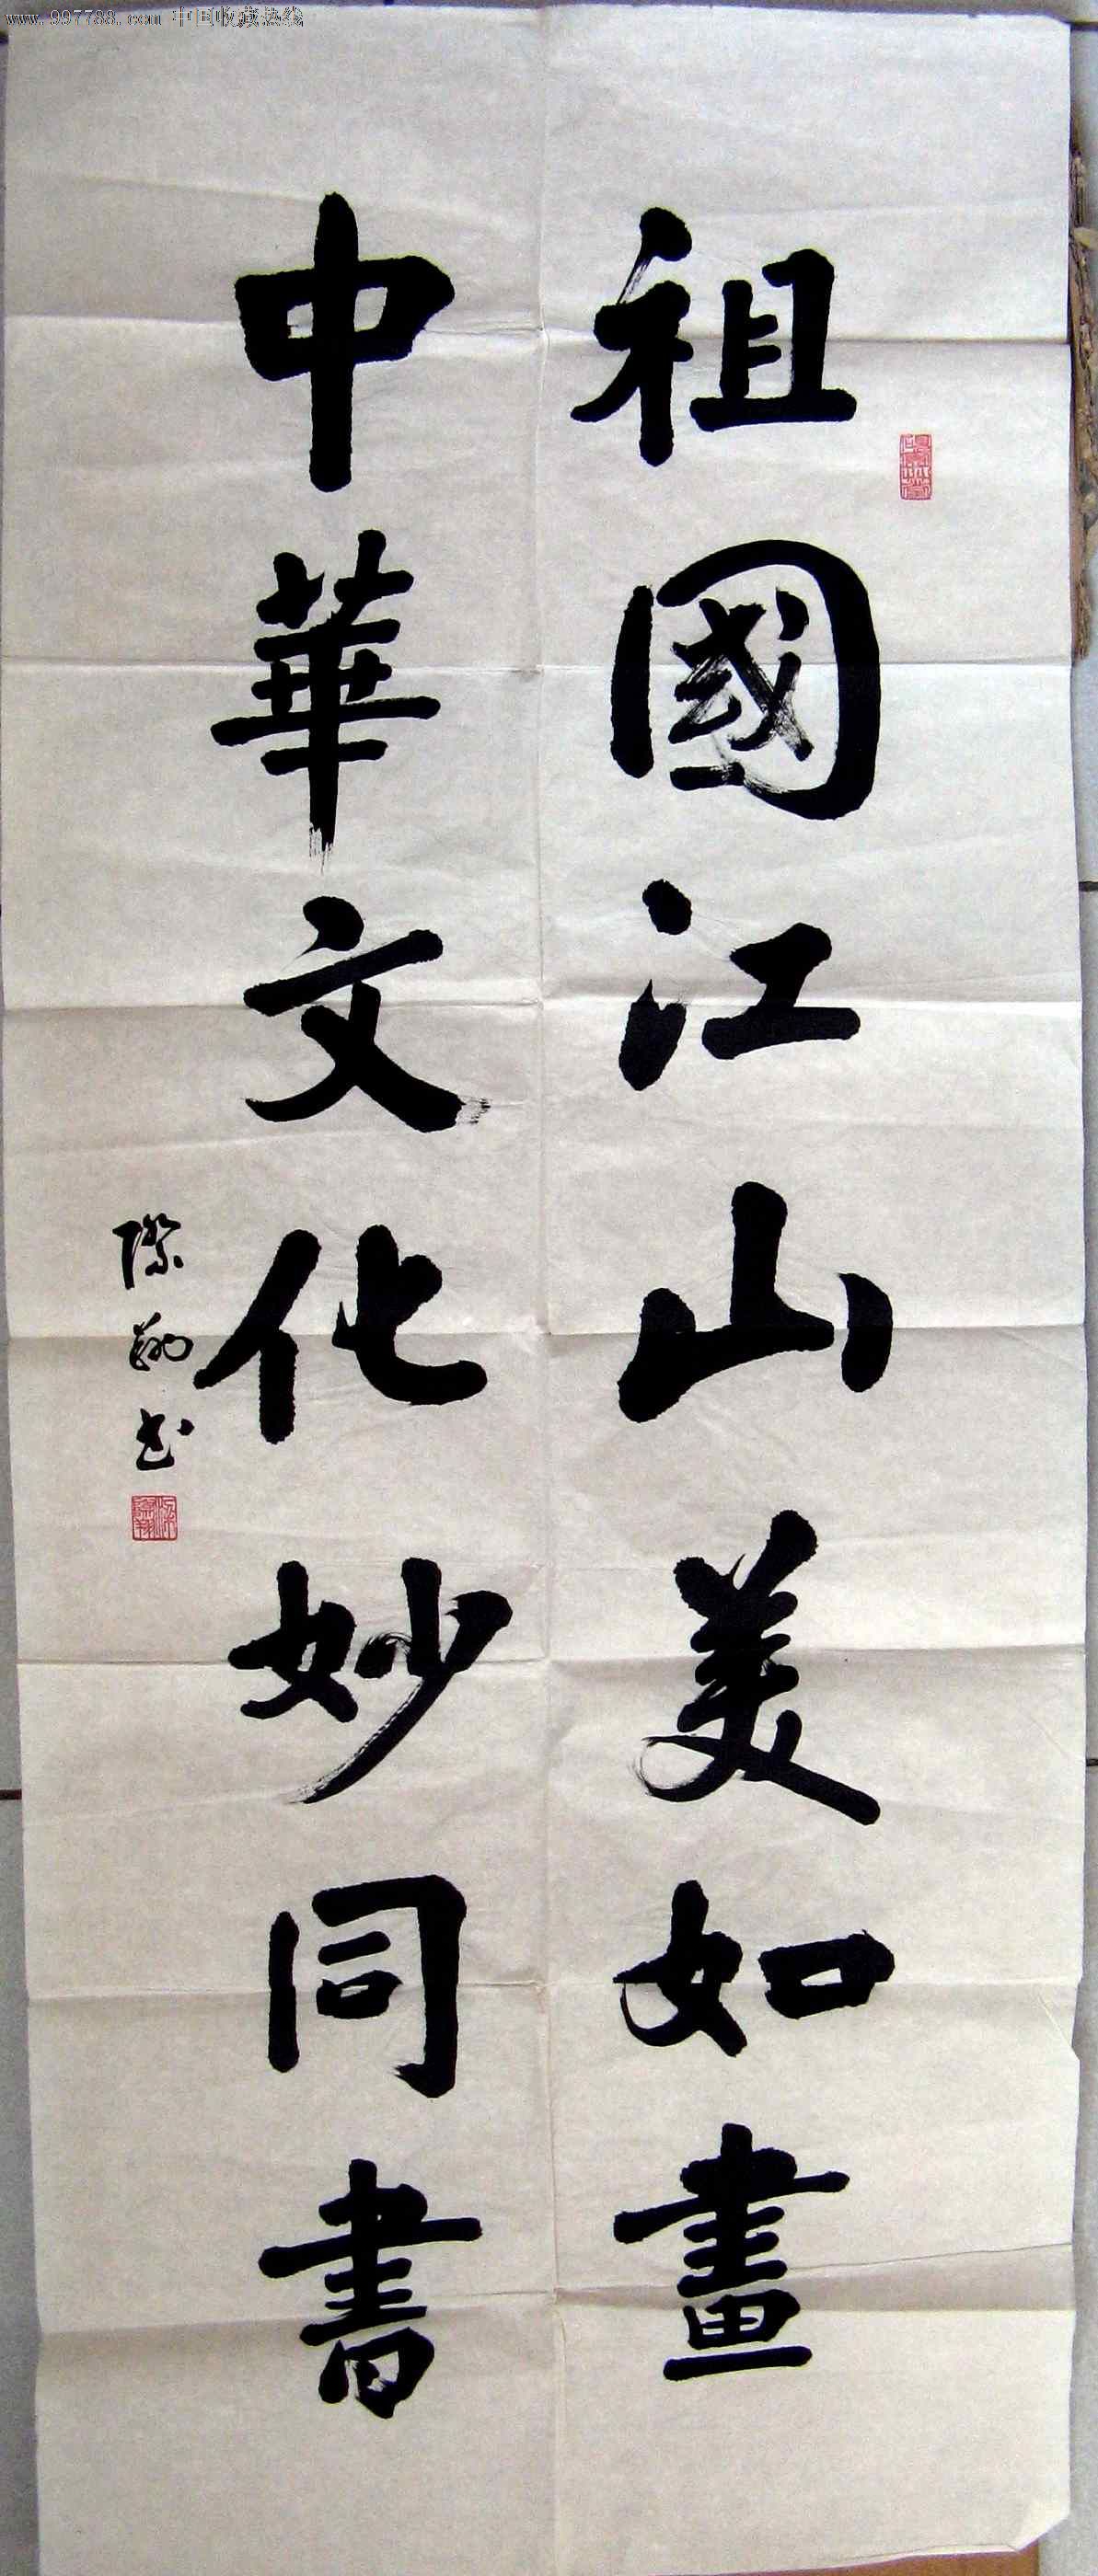 www.997788.com 中国收藏热线
祖國江山美如畫
中華文化妙同書
際翔书